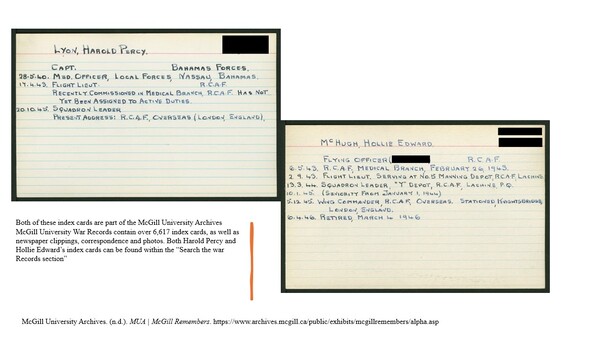 LYON, HAROLD PERCY.
CAPT. BAHAMAS FORCES.
28.5.40. MED. OFFICER, LOCAL FORCES, NASSAU, BAHAMAS.
17.4.43. FLIGHT LIEUT. R.C.A.F.
RECENTLY COMMISSIONED IN MEDICAL BRANCH, R.C.A.F. HAS NOT
YET BEEN ASSIGNED TO ACTIVE DUTIES.
20.10.45. SQUADRON LEADER
PRESENT ADDRESS: R.C.A.F., OVERSEAS (LONDON, ENGLAND).
McHUGH, HOLLIE EDWARD.
FLYING OFFICER R.C.A.F.
2.5.43. R.C.A.F. MEDICAL BRANCH, FEBRUARY 26, 1943.
2.9.43. FLIGHT LIEUT. SERVING AT No.5 MANNING DEPOT, R.C.A.F., LACHINE.
13.3.44. SQUADRON LEADER, "Y" DEPOT, R.C.A.F., LACHINE, P.Q.
10.1.45. (SENIORITY FROM JANUARY 1, 1944)
5.12.45. WING COMMANDER, R.C.A.F. OVERSEAS. STATIONED KNIGHTSBRIDGE,
LONDON, ENGLAND.
10.4.46. RETIRED, MARCH 4 1946
Both of these index cards are part of the McGill University Archives
McGill University War Records contain over 6,617 index cards, as well as
newspaper clippings, correspondence and photos. Both Harold Percy and
Hollie Edward's index cards can be found within the "Search the war
Records section"
McGill University Archives. (n.d.). MUA | McGill Remembers. https://www.archives.mcgill.ca/public/exhibits/mcgillremembers/alpha.asp